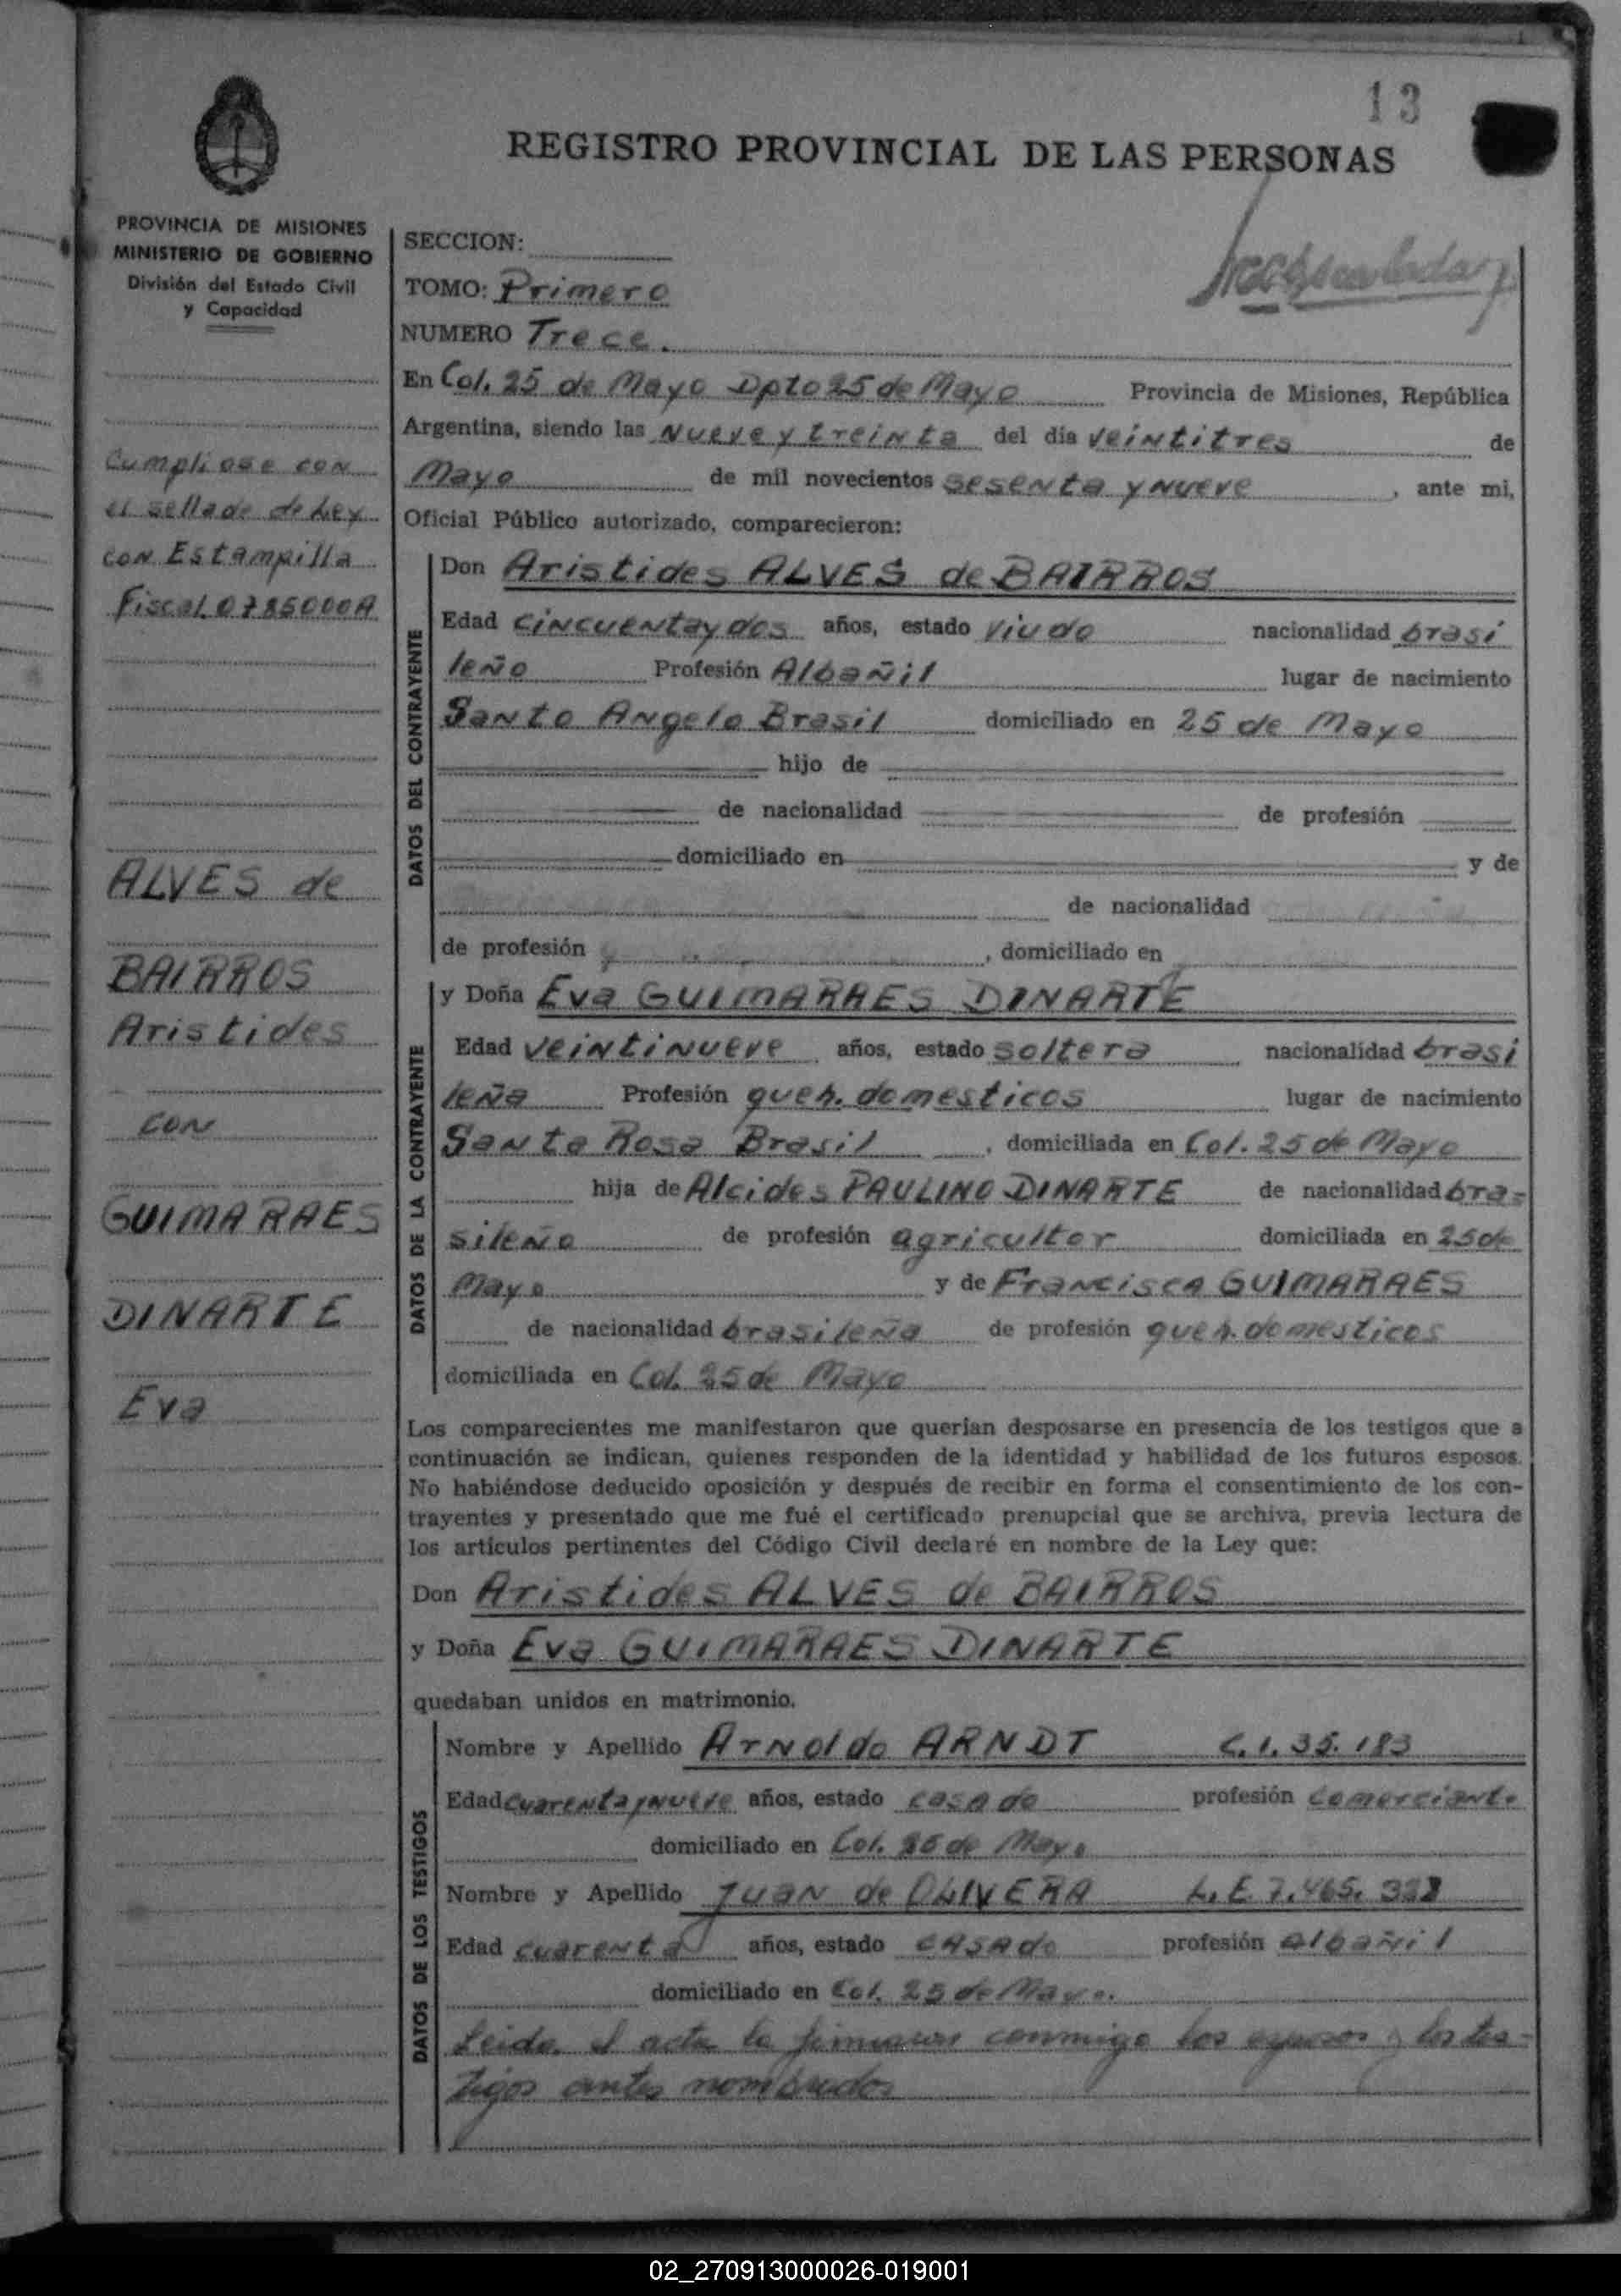 13
REGISTRO PROVINCIAL DE LAS PERSONAS
PROVINCIA DE MISIONES
MINISTERIO DE GOBIERNO
División del Estado Civil
y Capacidad
SECCION:
TOMO: Primero
NUMERO Trece.
En Col. 25 de Mayo Dpto 25 de Mayo Provincia de Misiones, República
Argentina, siendo las nueve y treinta del día veintitres de
Mayo de mil novecientos sesenta y nueve, ante mi,
Oficial Público autorizado, comparecieron:
Cumpliose con
el sellado de Ley
con Estampilla
Fiscal 0785000A
ALVES de
BAIRROS
Aristides
con
GUIMARAES
DINARTE
Eva
DATOS DEL CONTRAYENTE
Don Aristides ALVES de BAIRROS
Edad cincuenta y dos años, estado viudo nacionalidad brasi
leño Profesión Albañil lugar de nacimiento
Santo Angelo Brasil domiciliado en 25 de Mayo
hijo de
de nacionalidad de profesión
domiciliado en y de
de nacionalidad
de profesión , domiciliado en
DATOS DE LA CONTRAYENTE
y Doña Eva GUIMARAES DINARTE
Edad veintinueve años, estado soltera nacionalidad brasi
leña Profesión queh. domesticos lugar de nacimiento
Santa Rosa Brasil , domiciliada en Col. 25 de Mayo
hija de Alcides PAULINO DINARTE de nacionalidad bra=
sileño de profesión agricultor domiciliada en 25 de
Mayo y de Francisca GUIMARAES
de nacionalidad brasileña de profesión queh. domesticos
domiciliada en Col. 25 de Mayo
Los comparecientes me manifestaron que querían desposarse en presencia de los testigos que a
continuación se indican, quienes responden de la identidad y habilidad de los futuros esposos.
No habiéndose deducido oposición y después de recibir en forma el consentimiento de los con-
trayentes y presentado que me fué el certificado prenupcial que se archiva, previa lectura de
los artículos pertinentes del Código Civil declaré en nombre de la Ley que:
Don Aristides ALVES de BAIRROS
y Doña Eva GUIMARAES DINARTE
quedaban unidos en matrimonio.
DATOS DE LOS TESTIGOS
Nombre y Apellido Arnoldo ARNDT C.I. 35.183
Edad cuarenta y nueve años, estado casado profesión comerciante
domiciliado en Col. 25 de Mayo
Nombre y Apellido Juan de OLIVERA L.E. 7.465.
Edad cuarenta años, estado casado profesión albañil
domiciliado en Col. 25 de Mayo.
Leida el acta la firmaron conmigo los esposos y los tes-
tigos antes nombrados
02_270913000026-019001